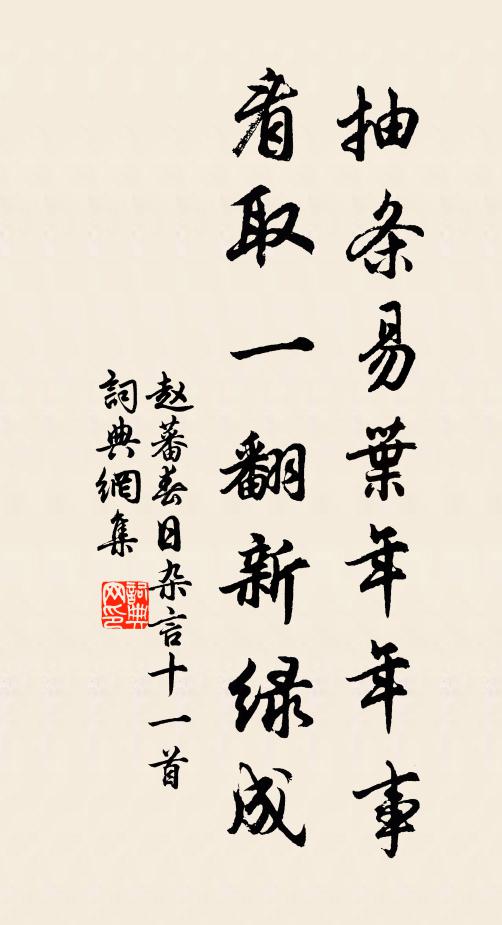 抽条易葉年年事
看取一翻新绿成
赵蕃春日杂言十一首
詞典網集
詞典网印